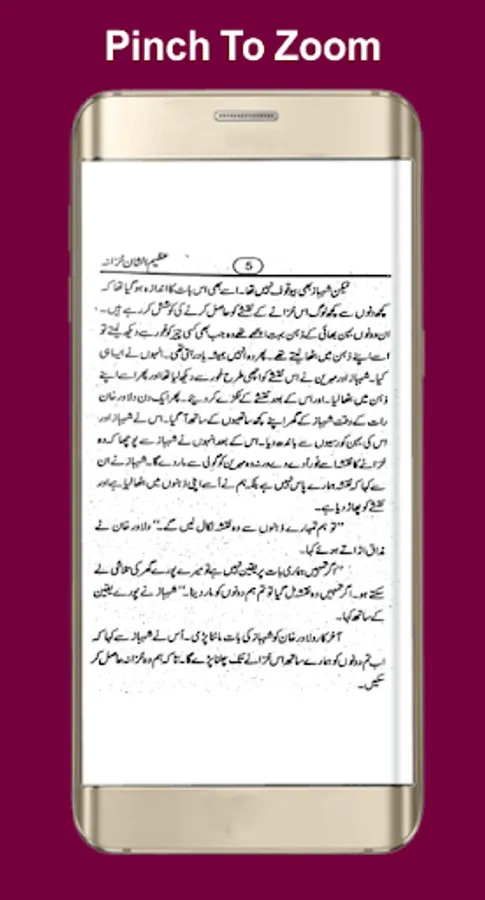 Pinch To Zoom
عظیم الشان خزانہ
5
لیکن شہباز بھی بیوقوف نہیں تھا۔ اسے بھی اس بات کا اندازہ ہو گیا تھا کہ
کچھ دنوں سے کچھ لوگ اس خزانے کے نقشے کو حاصل کرنے کی کوشش کر رہے ہیں۔
ان دونوں بہن بھائی کے ذہن بہت اچھے تھے وہ جب بھی کسی چیز کو غور سے دیکھ لیتے تو
اسے اپنے ذہن میں بٹھا لیتے تھے۔ پھر وہ انہیں ہمیشہ یاد رہتی تھی۔ انہوں نے ایسا ہی
کیا۔ شہباز اور مہرین نے اس نقشے کو اچھی طرح غور سے دیکھ لیا تھا اور پھر اسے اپنے
ذہن میں بٹھا لیا۔ اور اس کے بعد نقشے کے ٹکڑے کر دیئے۔ پھر ایک دن دلاور خان
رات کے وقت شہباز کے گھر اپنے کچھ ساتھیوں کے ساتھ آ گیا۔ اس نے شہباز اور
اس کی بہن کو رسیوں سے باندھ دیا۔ اس کے بعد انہوں نے شہباز سے پوچھا کہ وہ
خزانے کا نقشہ اسے فوراً دے دے ورنہ وہ مہرین کو گولی سے مار دے گا۔ شہباز نے ان
سے کہا کہ نقشہ ہمارے پاس نہیں ہے بلکہ ہم نے اُسے اپنی ذہنوں میں بٹھا لیا ہے اور
نقشے کو پھاڑ دیا ہے۔
”تو ہم تمہارے ذہنوں سے وہ نقشہ نکال لیں گے۔“ دلاور خان نے
مذاق اڑاتے ہوئے کہا۔
”اگر تمہیں ہماری بات پر یقین نہیں ہے تو میرے پورے گھر کی تلاشی لے
سکتے ہو۔ اگر تمہیں وہ نقشہ مل گیا تو تم ہم دونوں کو مار دینا۔“ شہباز نے پورے یقین
کے ساتھ کہا۔
آخر کار دلاور خان کو شہباز کی بات ماننا پڑی۔ اُس نے شہباز سے کہا کہ
اب تم دونوں کو ہمارے ساتھ اس خزانے تک چلنا پڑے گا۔ تاکہ ہم وہ خزانہ حاصل کر
سکیں۔